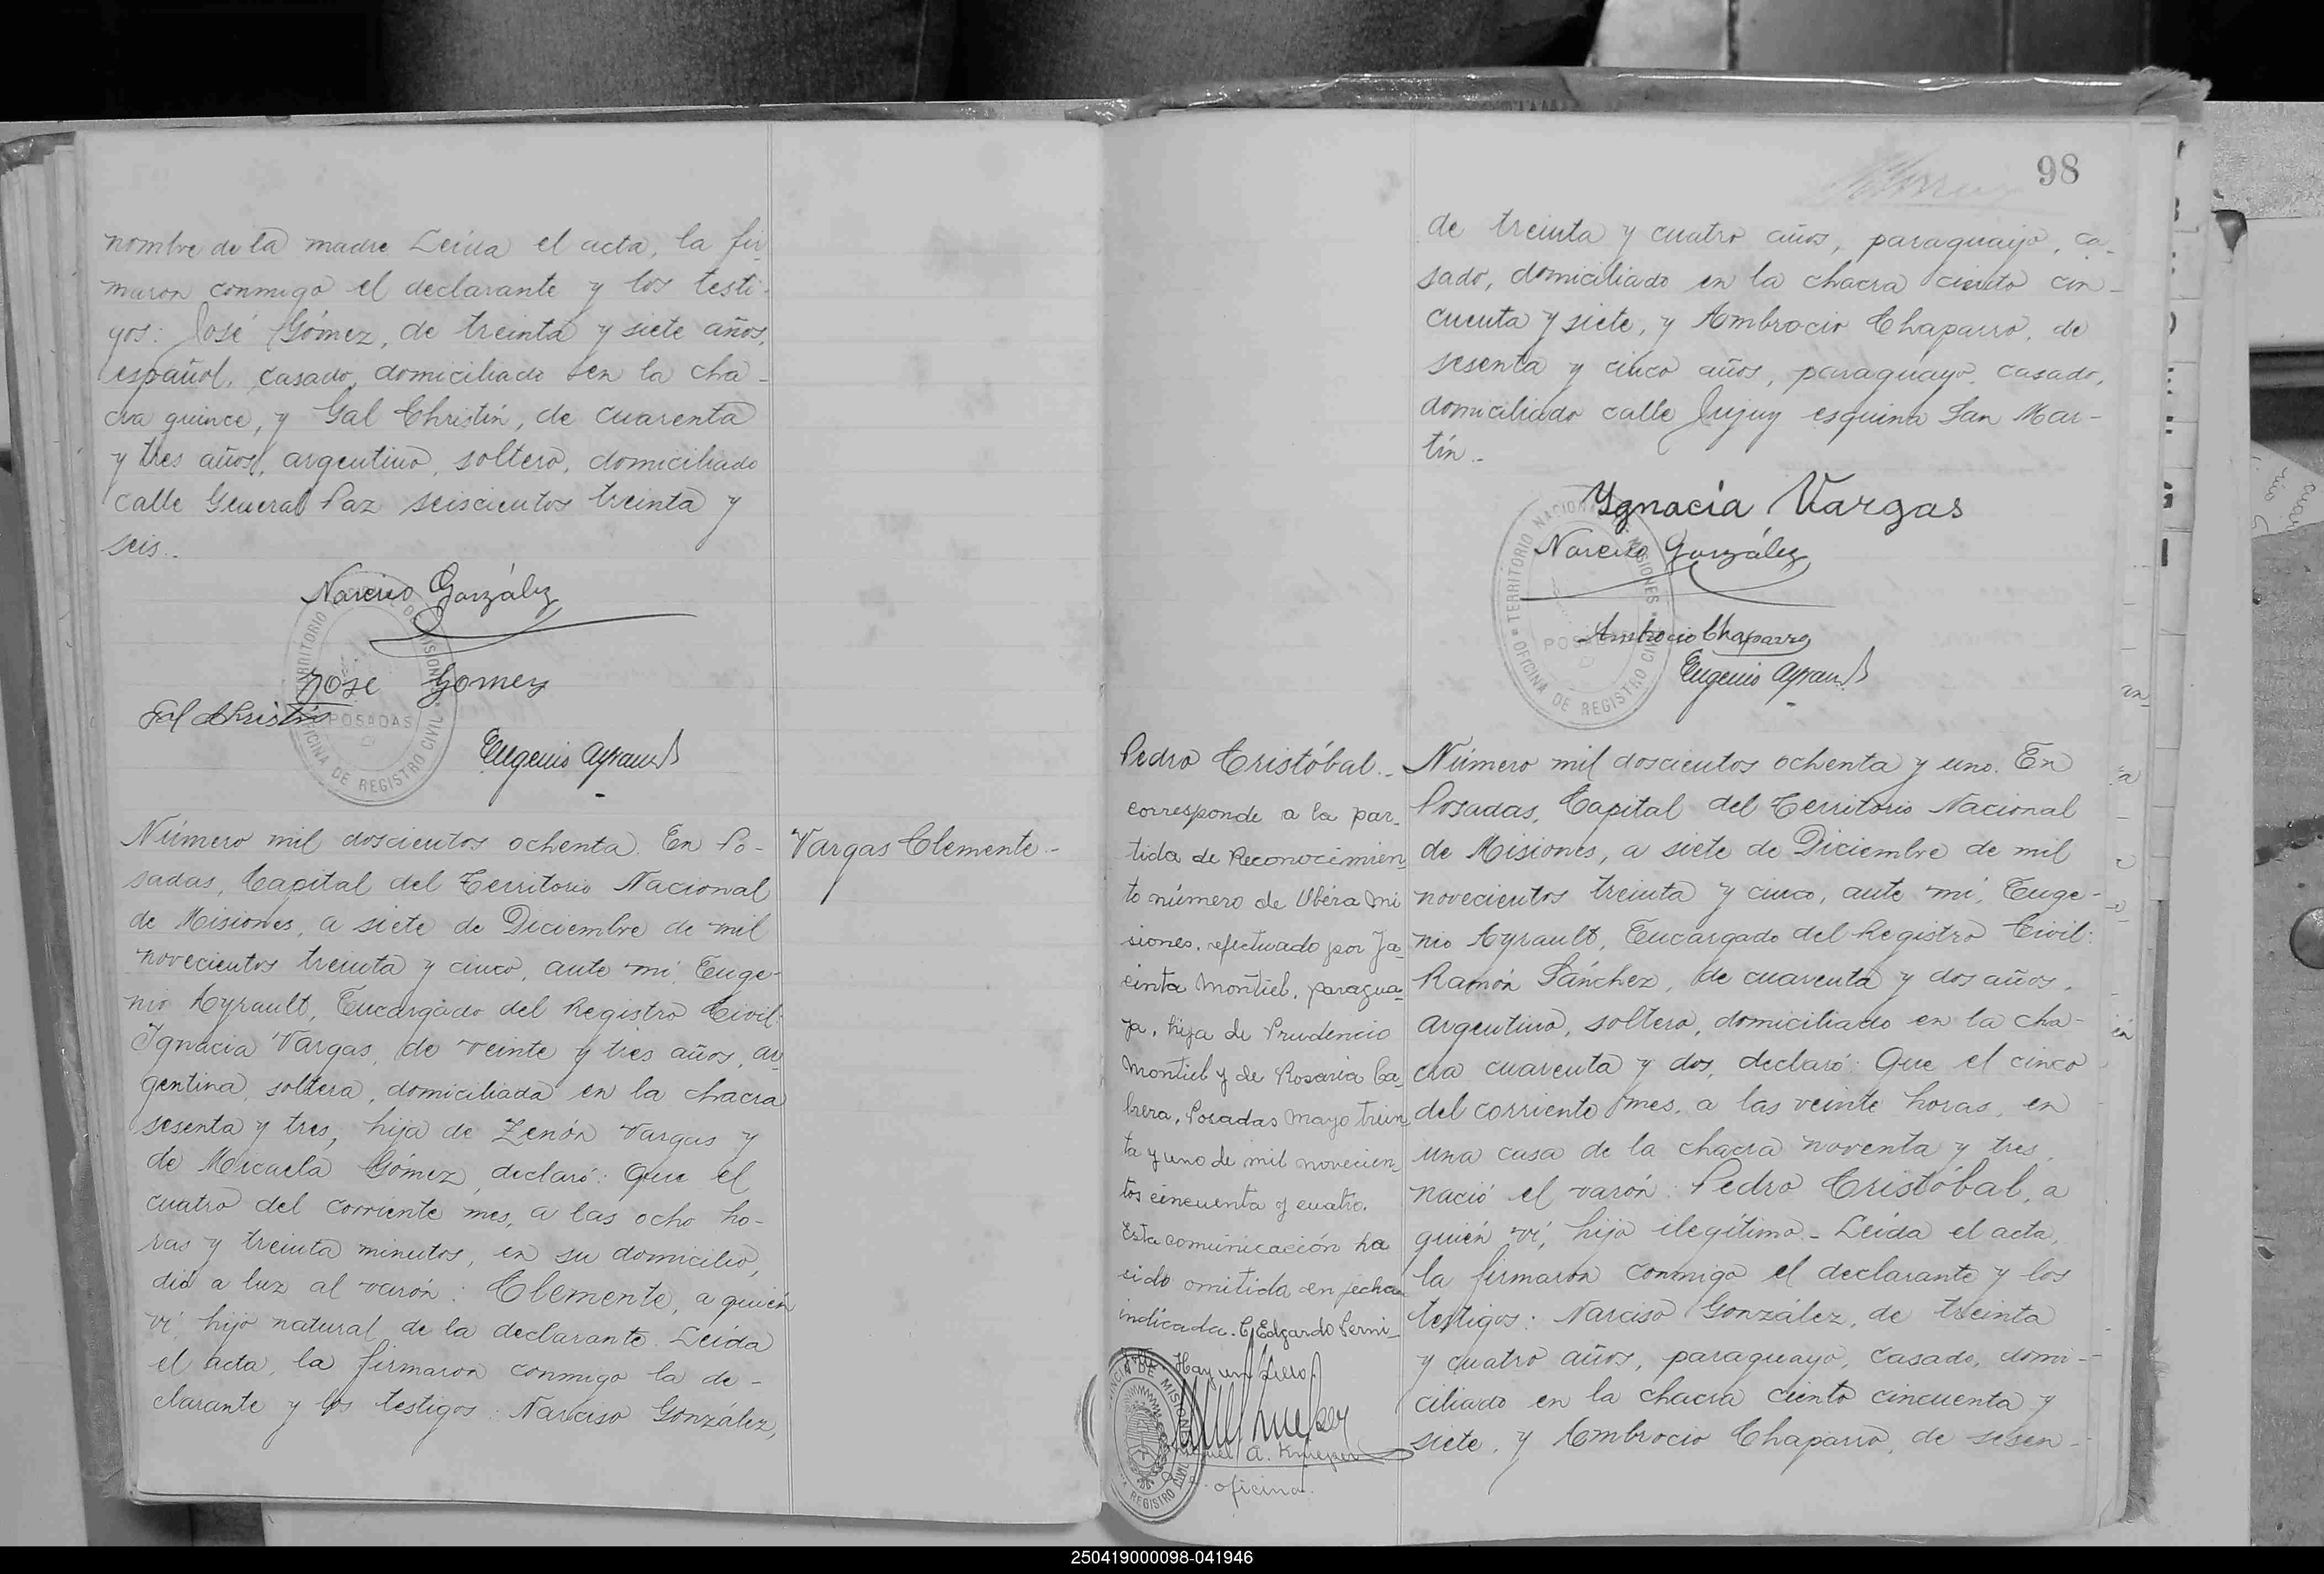 nombre de la madre Leída el acta, la fir-
maron conmigo el declarante y los testi-
gos: José Gómez, de treinta y siete años,
español, casado, domiciliado en la cha-
cra quince, y Gal Christin, de cuarenta
y tres años, argentino, soltero, domiciliado
calle General Paz seiscientos treinta y
seis.-
Narciso González
José Gomez
Gal Christin
POSADAS
OFICINA DE REGISTRO CIVIL
Eugenio Ayrault
Vargas Clemente.-
Número mil doscientos ochenta. En Po-
sadas, Capital del Territorio Nacional
de Misiones, a siete de Diciembre de mil
novecientos treinta y cinco, ante mí, Euge-
nio Ayrault, Encargado del Registro Civil:
Ignacia Vargas, de veinte y tres años, ar-
gentina, soltera, domiciliada en la chacra
sesenta y tres, hija de Zenón Vargas y
de Micaela Gómez, declaró: Que el
cuatro del corriente mes, a las ocho ho-
ras y treinta minutos, en su domicilio,
dió a luz al varón: Clemente, a quién
ví, hijo natural de la declarante. Leída
el acta, la firmaron conmigo la de-
clarante y los testigos: Narciso González,
98
de treinta y cuatro años, paraguayo, ca-
sado, domiciliado en la chacra ciento cin-
cuenta y siete, y Ambrocio Chaparro, de
sesenta y cinco años, paraguayo, casado,
domiciliado calle Jujuy esquina San Mar-
tín.-
Ygnacia Vargas
Narciso González
Ambrocio Chaparro
Eugenio Ayrault
TERRITORIO NACIONAL MISIONES
OFICINA DE REGISTRO CIVIL
Pedro Cristóbal.-
corresponde a la par-
tida de Reconocimien-
to número de Obera Mi
siones, efectuado por Ja-
cinta Montiel, paragua-
ya, hija de Prudencio
Montiel y de Rosaria Ca-
brera, Posadas Mayo trein
ta y uno de mil novecien-
tos cincuenta y cuatro.
Esta comunicación ha
sido omitida en fecha
indicada.
Edgardo
Hay un sello.
A.
oficina.
Número mil doscientos ochenta y uno. En
Posadas, Capital del Territorio Nacional
de Misiones, a siete de Diciembre de mil
novecientos treinta y cinco, ante mí, Euge-
nio Ayrault, Encargado del Registro Civil:
Ramón Sánchez, de cuarenta y dos años,
argentino, soltero, domiciliado en la cha-
cra cuarenta y dos, declaró: Que el cinco
del corriente mes, a las veinte horas, en
una casa de la chacra noventa y tres,
nació el varón: Pedro Cristóbal, a
quién ví, hijo ilegítimo.- Leída el acta,
la firmaron conmigo el declarante y los
testigos: Narciso González, de treinta
y cuatro años, paraguayo, casado, domi-
ciliado en la chacra ciento cincuenta y
siete, y Ambrocio Chaparro, de sesen-
250419000098-041946